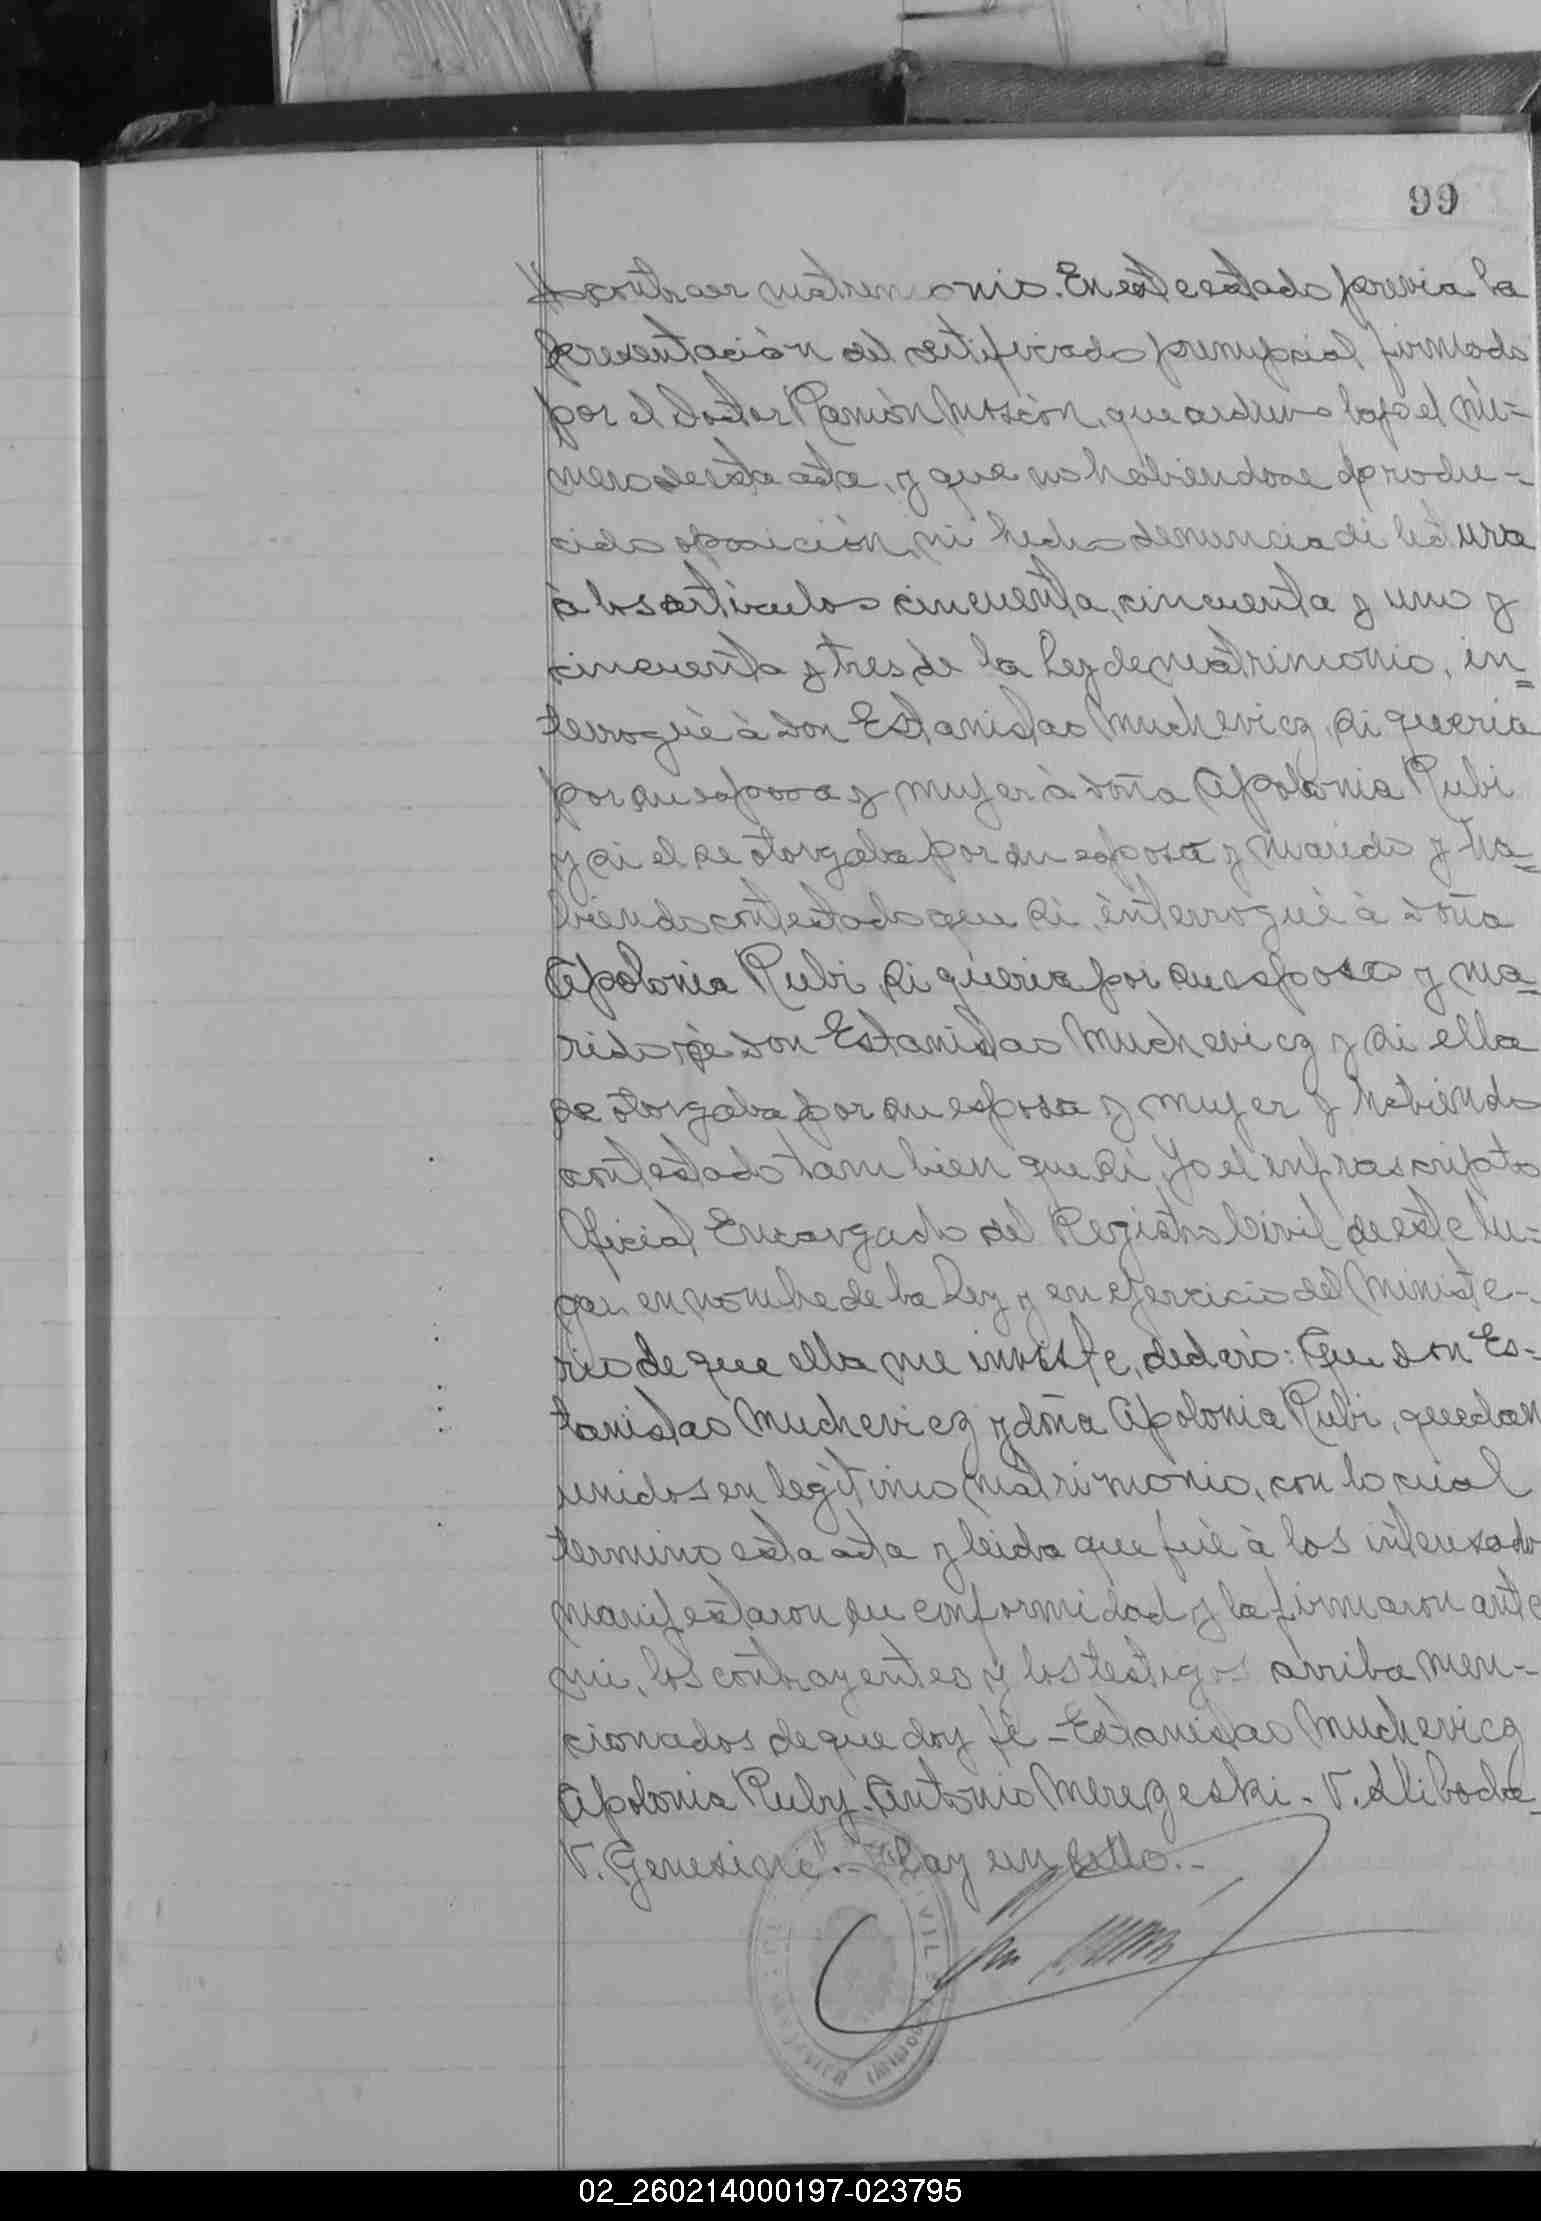 99
contraer matrimonio. En este estado previa la
presentación del certificado prenupcial, firmado
por el doctor Ramón Moscón, que archivo bajo el nú-
mero de esta acta, y que no habiendose produ-
cido oposición, ni hecho denuncia di lectura
á los artículos cincuenta, cincuenta y uno y
cincuenta y tres, de la Ley de matrimonio, in-
terrogué á don Estanislao Muchevicz, si queria
por su esposa y mujer á doña Apolonia Rubi
y si el se otorgaba por su esposo y marido y ha-
biendo contestado que si, interrogué á doña
Apolonia Rubi, si queria por su esposo y ma-
rido á don Estanislao Muchevicz y si ella
se otorgaba por su esposa y mujer y habiendo
contestado tambien que si, Yo el infrascripto
Oficial Encargado del Registro Civil de este lu-
gar en nombre de la Ley y en ejercicio del Ministe-
rio de que ella me inviste, declaro: Que don Es-
tanislao Muchevicz y doña Apolonia Rubi, quedan
unidos en legítimo matrimonio, con lo cual
termino esta acta y leida que fué á los interesado
manifestaron su conformidad y la firmaron ante
mi, los contrayentes y los testigos arriba men-
cionados de que doy fé - Estanislao Muchevicz
Apolonia Ruby. Antonio Meregeski. - V. Sliboda
V. Genesini". - Hay un sello. -
02_260214000197-023795